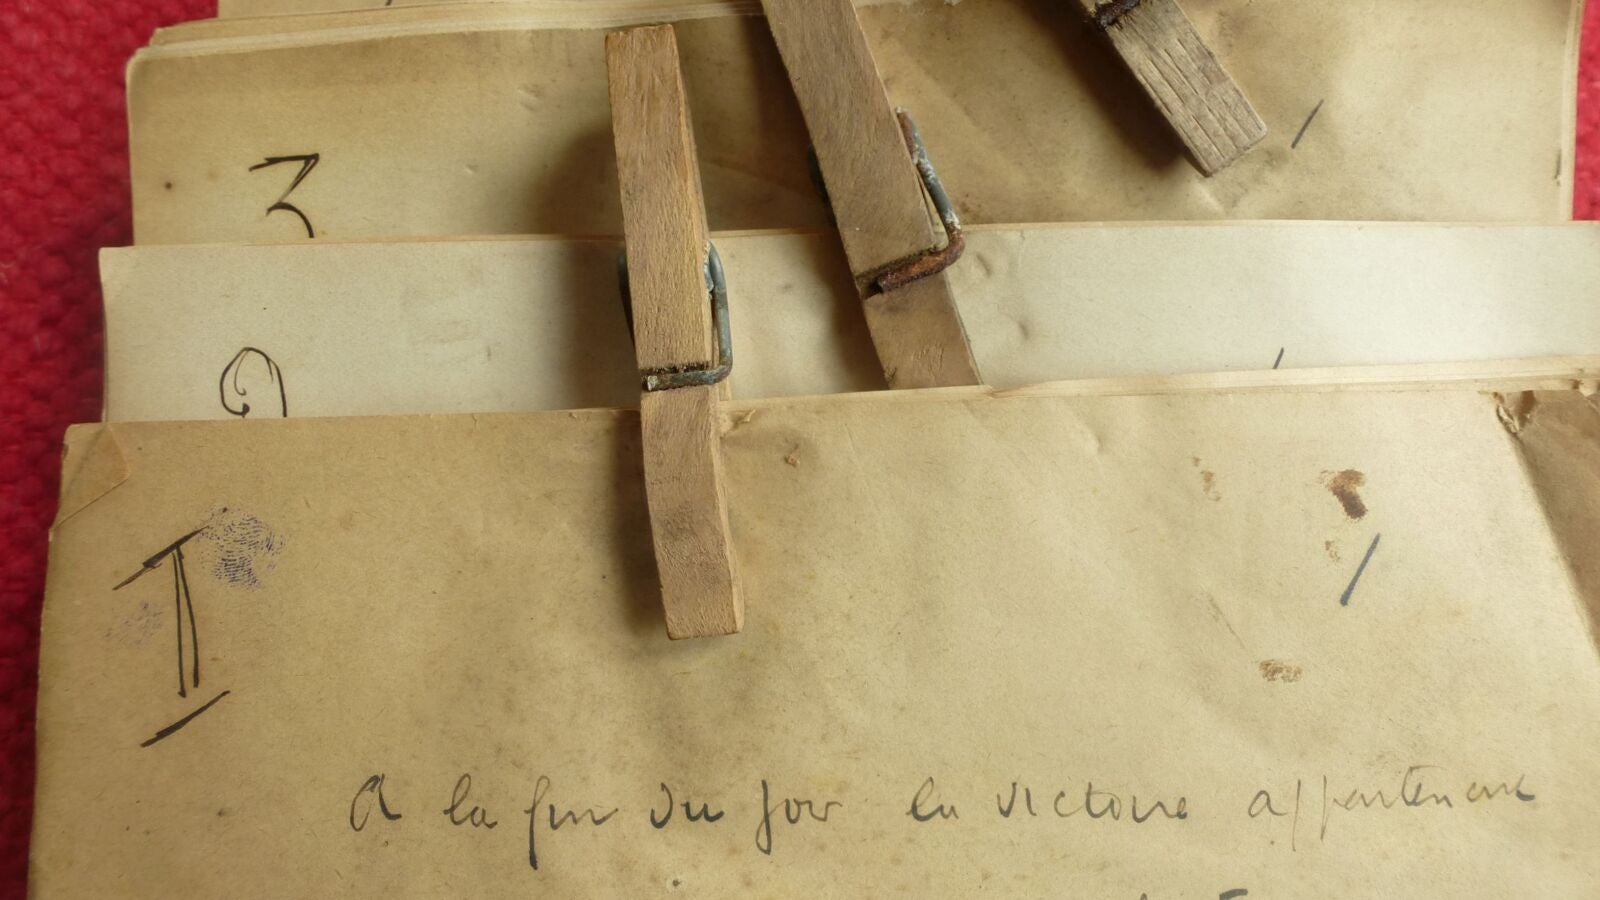 3
2
I
A la fin du jour la victoire appartenait